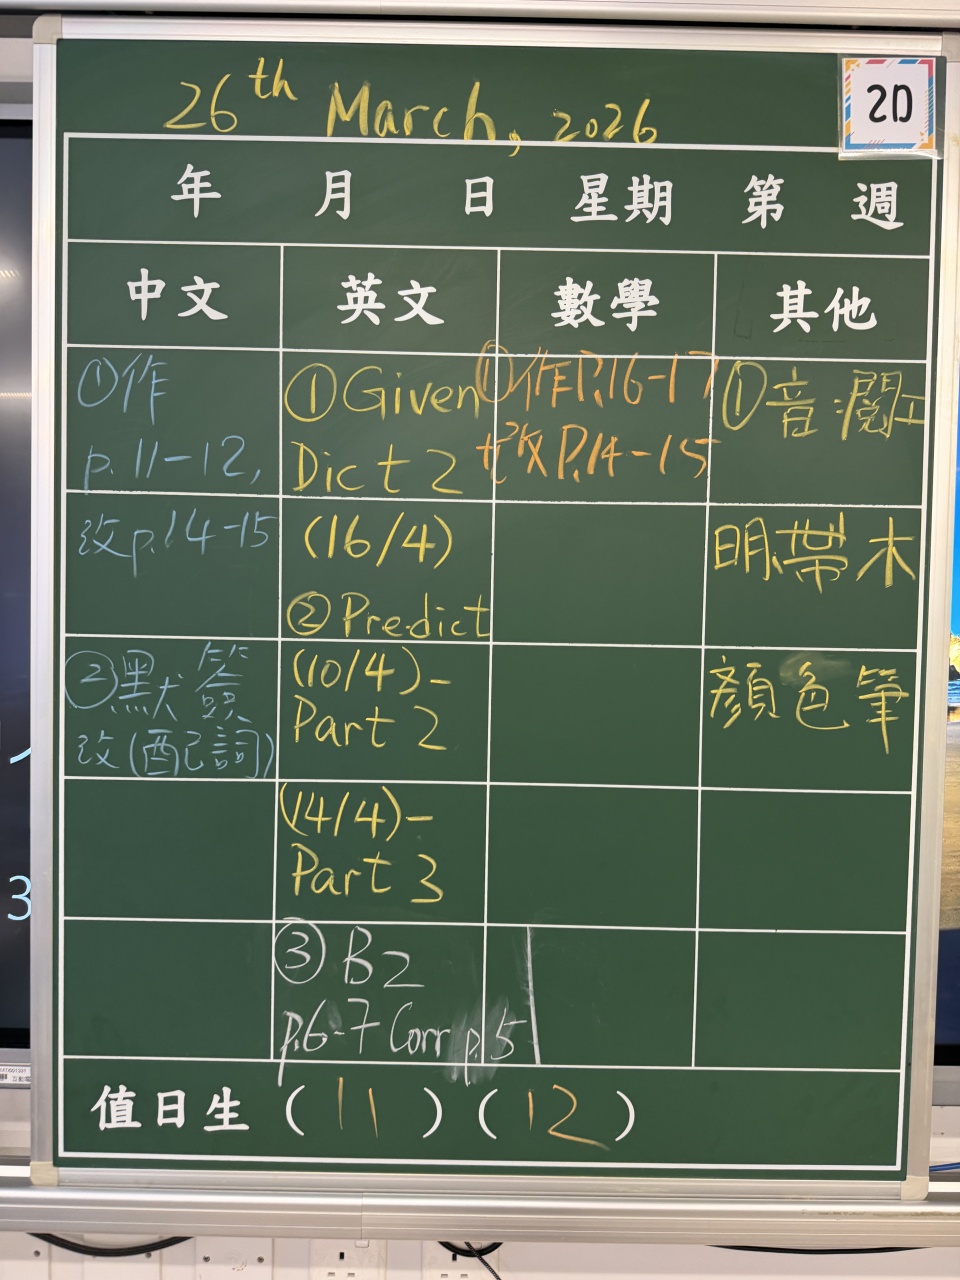 26th March, 2026
2D
年 月 日 星期 第 週
中文 英文 數學 其他
①作
p.11-12,
改p.14-15
②默簽
改(配詞)
①Given
Dict 2
(16/4)
②Predict
(10/4)-
Part 2
(14/4)-
Part 3
③ B2
p.6-7 Corr p.5
①作P.16-17
改P.14-15
①音
明帶木
顏色筆
值日生 (11)(12)
3